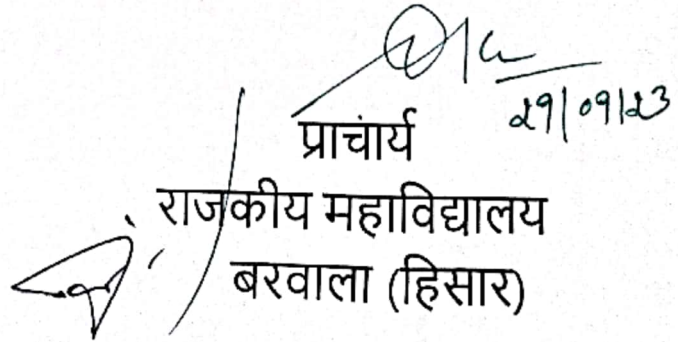 29/09/23
प्राचार्य
राजकीय महाविद्यालय
बरवाला (हिसार)